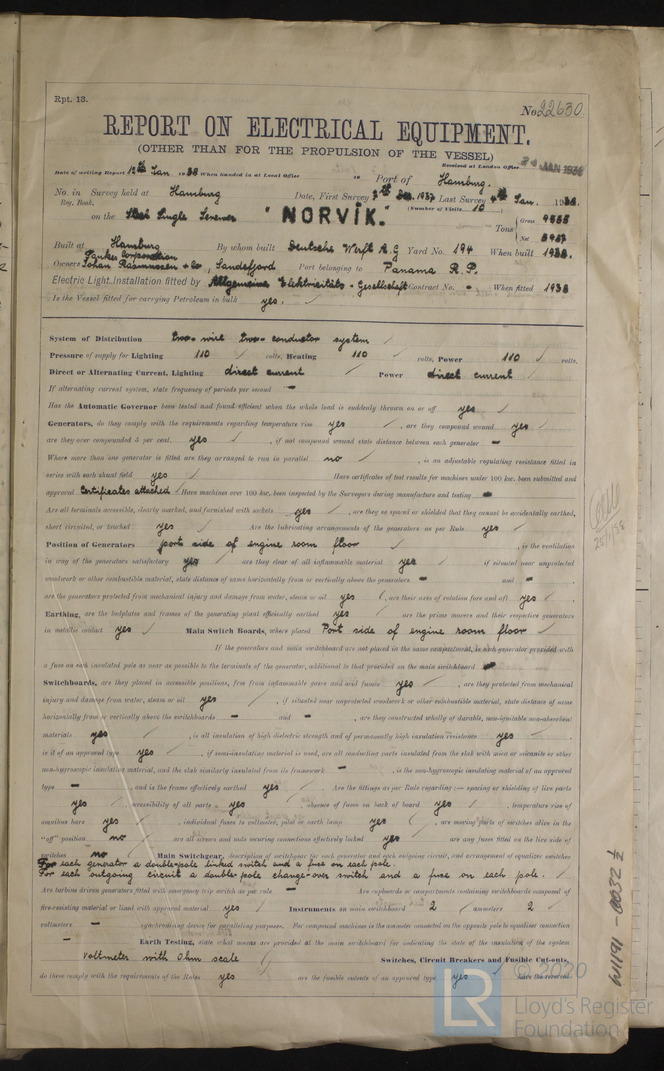 Rpt. 13.
No. 22630
REPORT ON ELECTRICAL EQUIPMENT.
(OTHER THAN FOR THE PROPULSION OF THE VESSEL)
Received at London Office 24 JAN 1938
Date of writing Report 12th Jan. 1938 When handed in at Local Office " Port of Hamburg.
No. in Survey held at Hamburg Date, First Survey Dec. 1937 Last Survey Jan. 1938.
Reg. Book. (Number of Visits 10)
on the Steel Single Screwer "NORVIK." Tons Gross 9555
Net
Built at Hamburg By whom built Deutsche Werft A.G Yard No. 194 When built 1938.
Tanker Corporation
Owners Johan Rasmussen & Co, Sandefjord Port belonging to Panama R.P.
Electric Light Installation fitted by Allgemeine Elektricitäts-Gesellschaft Contract No. - When fitted 1938
Is the Vessel fitted for carrying Petroleum in bulk yes.
System of Distribution two-wire two-conductor system
Pressure of supply for Lighting 110 volts, Heating 110 volts, Power 110 volts.
Direct or Alternating Current, Lighting direct current Power direct current
If alternating current system, state frequency of periods per second -
Has the Automatic Governor been tested and found efficient when the whole load is suddenly thrown on or off yes
Generators, do they comply with the requirements regarding temperature rise yes, are they compound wound yes
are they over compounded 5 per cent. yes, if not compound wound state distance between each generator -
Where more than one generator is fitted are they arranged to run in parallel no, is an adjustable regulating resistance fitted in
series with each shunt field yes Have certificates of test results for machines under 100 kw. been submitted and
approved Certificates attached Have machines over 100 kw. been inspected by the Surveyors during manufacture and testing -
Are all terminals accessible, clearly marked, and furnished with sockets yes, are they so spaced or shielded that they cannot be accidentally earthed,
short circuited, or touched yes Are the lubricating arrangements of the generators as per Rule yes
Position of Generators port side of engine room floor, is the ventilation
in way of the generators satisfactory yes are they clear of all inflammable material yes if situated near unprotected
woodwork or other combustible material, state distance of same horizontally from or vertically above the generators - and -
are the generators protected from mechanical injury and damage from water, steam or oil yes, are their axes of rotation fore and aft yes
Earthing, are the bedplates and frames of the generating plant efficiently earthed yes are the prime movers and their respective generators
in metallic contact yes Main Switch Boards, where placed Port side of engine room floor
If the generators and main switchboard are not placed in the same compartment, is each generator provided with
a fuse on each insulated pole as near as possible to the terminals of the generator, additional to that provided on the main switchboard -
Switchboards, are they placed in accessible positions, free from inflammable gases and acid fumes yes, are they protected from mechanical
injury and damage from water, steam or oil yes, if situated near unprotected woodwork or other combustible material, state distance of same
horizontally from or vertically above the switchboards - and -, are they constructed wholly of durable, non-ignitable non-absorbent
materials yes, is all insulation of high dielectric strength and of permanently high insulation resistance yes
is it of an approved type yes, if semi-insulating material is used, are all conducting parts insulated from the slab with mica or micanite or other
non-hygroscopic insulating material, and the slab similarly insulated from its framework -, is the non-hygroscopic insulating material of an approved
type -, and is the frame effectively earthed yes Are the fittings as per Rule regarding :— spacing or shielding of live parts
yes, accessibility of all parts yes, absence of fuses on back of board yes, temperature rise of
omnibus bars yes, individual fuses to voltmeter, pilot or earth lamp yes are moving parts of switches alive in the
"off" position no are all screws and nuts securing connections effectively locked yes are any fuses fitted on the live side of
switches no Main Switchgear, description of switchgear for each generator and each outgoing circuit, and arrangement of equaliser switches
For each generator a double-pole linked switch and a fuse on each pole.
For each outgoing circuit a double-pole change-over switch and a fuse on each pole.
Are turbine driven generators fitted with emergency trip switch as per rule - Are cupboards or compartments containing switchboards composed of
fire-resisting material or lined with approved material yes Instruments on main switchboard 2 ammeters 2
voltmeters - synchronising device for paralleling purposes. For compound machines is the ammeter connected on the opposite pole to equaliser connection
- Earth Testing, state what means are provided at the main switchboard for indicating the state of the insulation of the system
Voltmeter with Ohm scale Switches, Circuit Breakers and Fusible Cut-outs,
do these comply with the requirements of the Rules yes are the fusible cutouts of an approved type yes have the reversed
25/1/38
W1191-0032 ½
LR © 2020
Lloyd's Register
Foundation